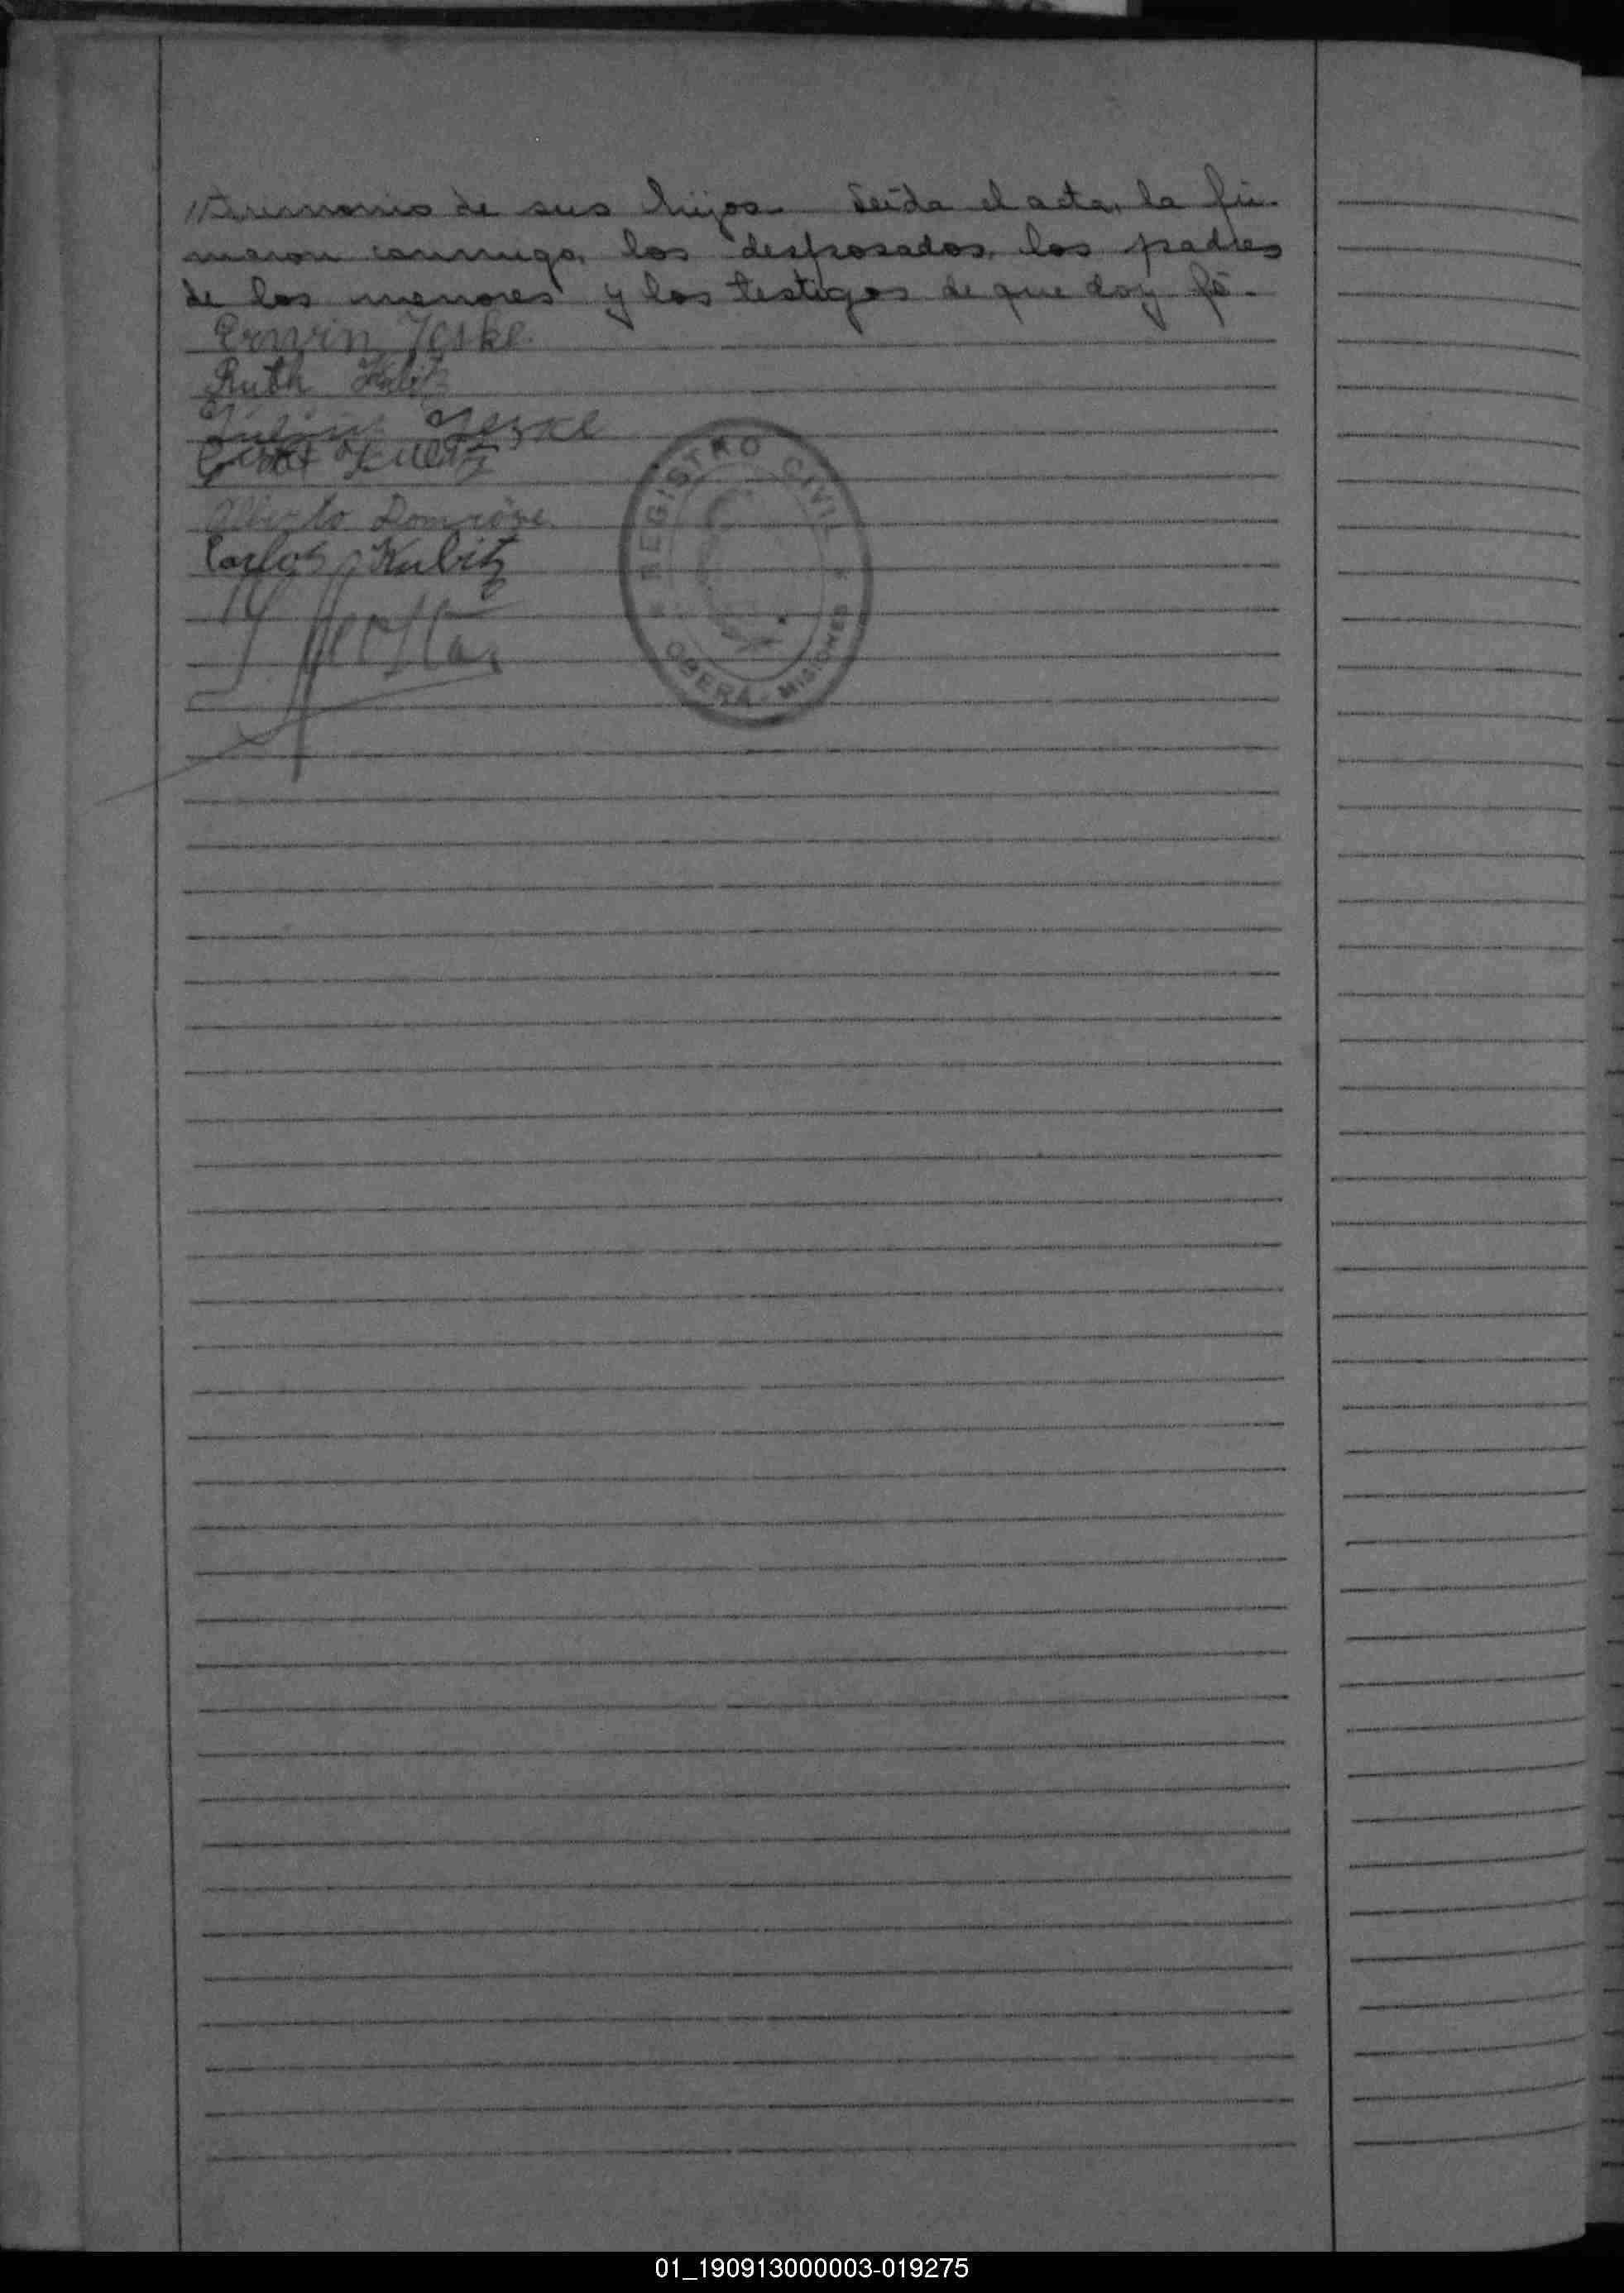 //trimonio de sus hijos. Leída el acta, la fir-
maron conmigo, los desposados, los padres
de los menores y los testigos de que doy fé.
Erwin Jeske
Ruth Kubitz
Jeske
Alberto Domröse
Carlos Kubitz
REGISTRO CIVIL
OBERÁ - MISIONES
01_190913000003-019275